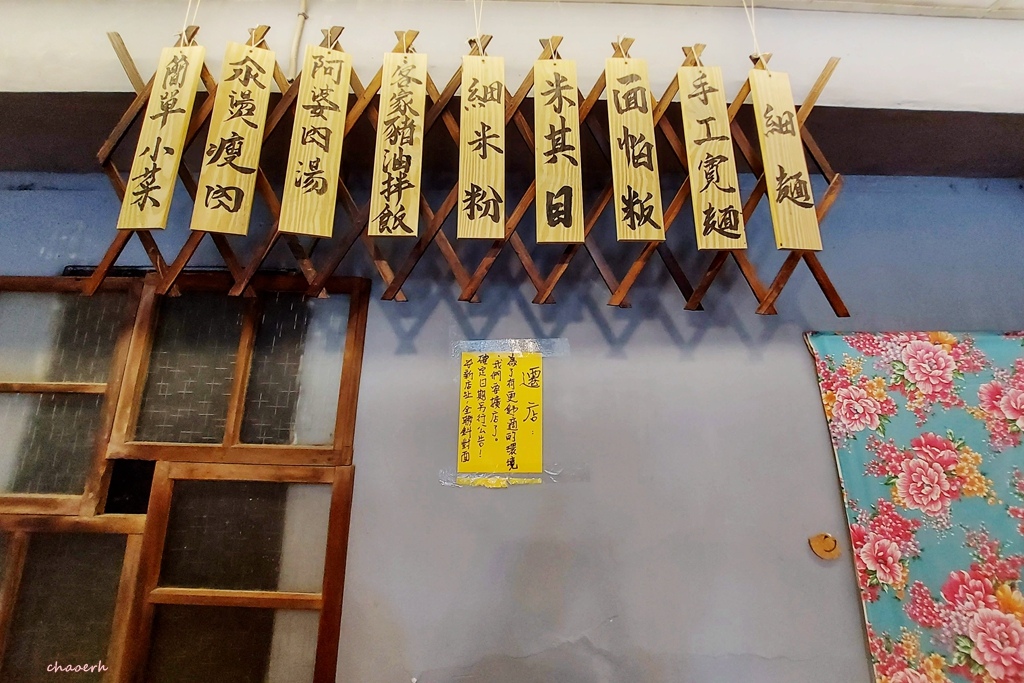 細麵
手工寬麵
面怕粄
米其目
細米粉
客家豬油拌飯
阿婆肉湯
汆燙瘦肉
簡單小菜
遷店:
為了有更舒適的環境
我們要擴店了。
確定日期另行公告!
新店址:全聯斜對面
chaoerh